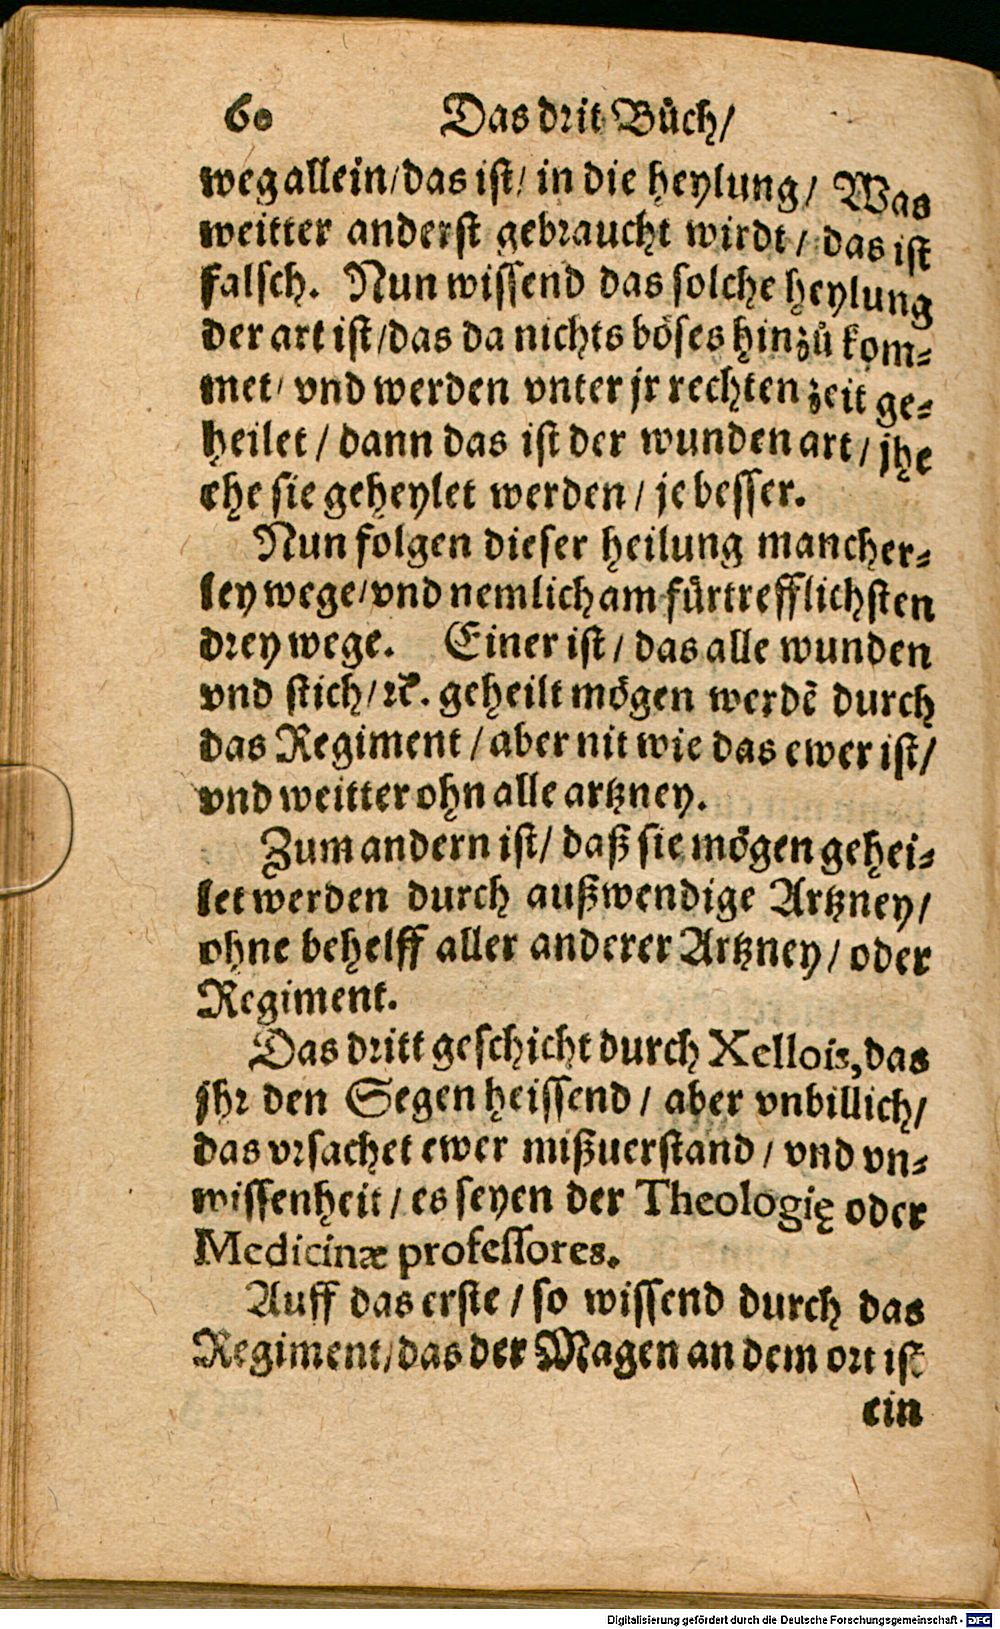 60 Das drit Bůch/
weg allein/ das ist/ in die heylung/ Was
weitter anderst gebraucht wirdt/ das ist
falsch. Nun wissend das solche heylung
der art ist/ das da nichts böses hinzů kom-
met/ vnd werden vnter jr rechten zeit ge-
heilet/ dann das ist der wunden art/ jhe
ehe sie geheylet werden/ je besser.
Nun folgen dieser heilung mancher-
ley wege/ vnd nemlich am fürtrefflichsten
drey wege. Einer ist/ das alle wunden
vnd stich/ ꝛc. geheilt mögen werdē durch
das Regiment/ aber nit wie das ewer ist/
vnd weitter ohn alle artzney.
Zum andern ist/ daß sie mögen gehei-
let werden durch außwendige Artzney/
ohne behelff aller anderer Artzney/ oder
Regiment.
Das dritt geschicht durch Xellois, das
jhr den Segen heissend/ aber vnbillich/
das vrsachet ewer mißuerstand/ vnd vn-
wissenheit/ es seyen der Theologię oder
Medicinæ professores.
Auff das erste/ so wissend durch das
Regiment/ das der Magen an dem ort ist
ein
Digitalisierung gefördert durch die Deutsche Forschungsgemeinschaft - DFG